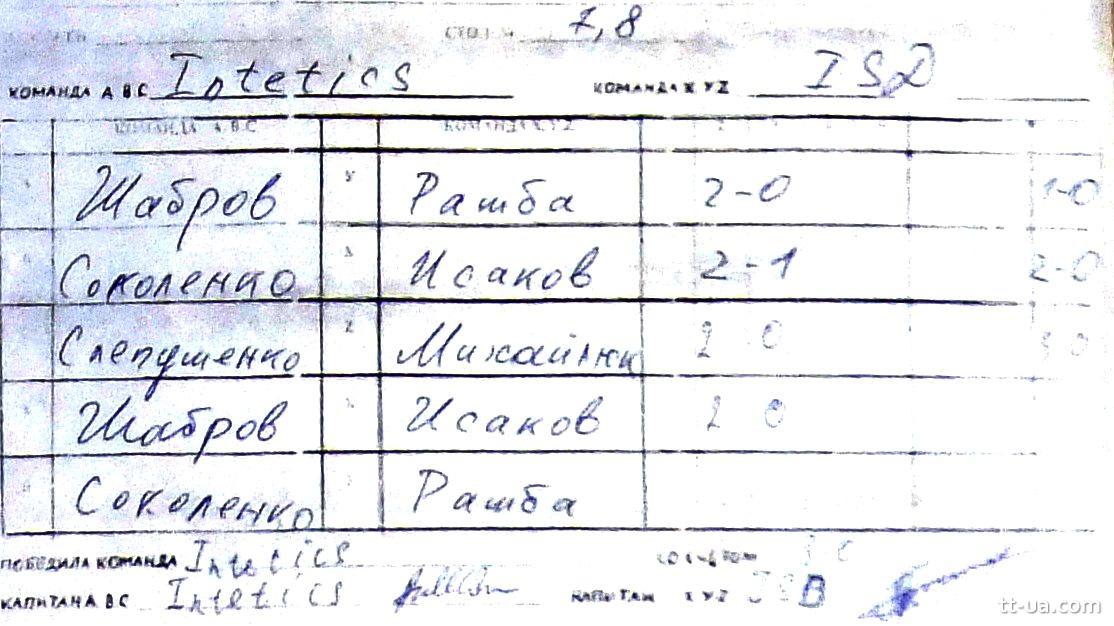 СТОЛ 7,8
КОМАНДА А В С Intetics КОМАНДА X Y Z ISD
КОМАНДА А В С КОМАНДА X Y Z
Шабров Рашба 2-0 1-0
Соколенко Исаков 2-1 2-0
Слепушенко Михайлюк 2 0 3 0
Шабров Исаков 2 0
Соколенко Рашба
ПОБЕДИЛА КОМАНДА Intetics
КАПИТАН А В С Intetics КАПИТАН X Y Z
tt-ua.com